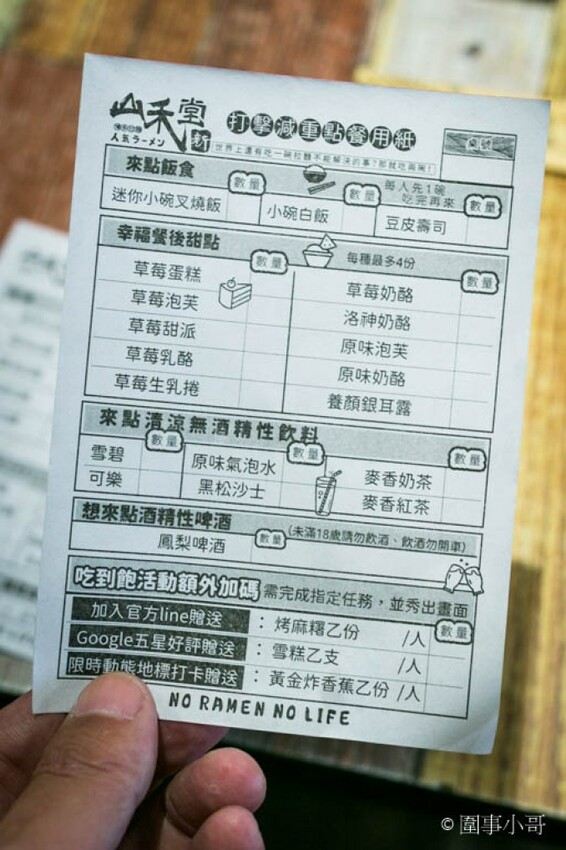 山禾堂
人氣ラーメン
新
打擊減重點餐用紙
世界上還有吃一碗拉麵不能解決的事?那就吃兩碗!
桌號
來點飯食
數量
數量
每人先1碗
吃完再來
數量
迷你小碗叉燒飯
小碗白飯
豆皮壽司
幸福餐後甜點
數量
每種最多4份
數量
草莓蛋糕
草莓泡芙
草莓甜派
草莓乳酪
草莓生乳捲
草莓奶酪
洛神奶酪
原味泡芙
原味奶酪
養顏銀耳露
來點清涼無酒精性飲料
數量
數量
數量
雪碧
可樂
原味氣泡水
黑松沙士
麥香奶茶
麥香紅茶
想來點酒精性啤酒
鳳梨啤酒
數量
(未滿18歲請勿飲酒、飲酒勿開車)
吃到飽活動額外加碼 需完成指定任務,並秀出畫面
數量
加入官方line贈送 : 烤麻糬乙份 /人
Google五星好評贈送 : 雪糕乙支 /人
限時動態地標打卡贈送 : 黃金炸香蕉乙份 /人
NO RAMEN NO LIFE
© 圍事小哥